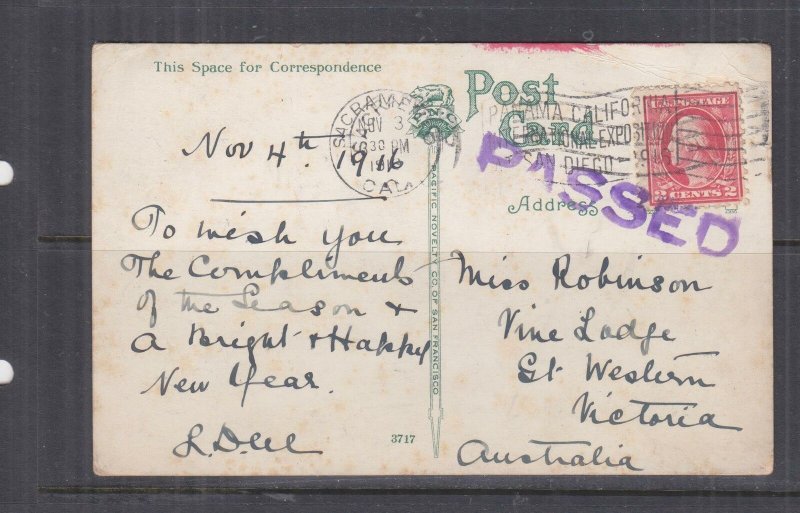 This Space for Correspondence
Post
Card
SACRAMENTO
NOV 3
30 PM
CAL.
PANAMA CALIFORNIA
EXPOSITION
SAN DIEGO
U.S. POSTAGE
2 CENTS 2
PASSED
Nov 4th 1916
To wish you
The Compliments
of the Season &
A Bright & Happy
New Year.
Address
Miss Robinson
Vine Lodge
Gt Western
Victoria
Australia
PACIFIC NOVELTY CO. OF SAN FRANCISCO
3717